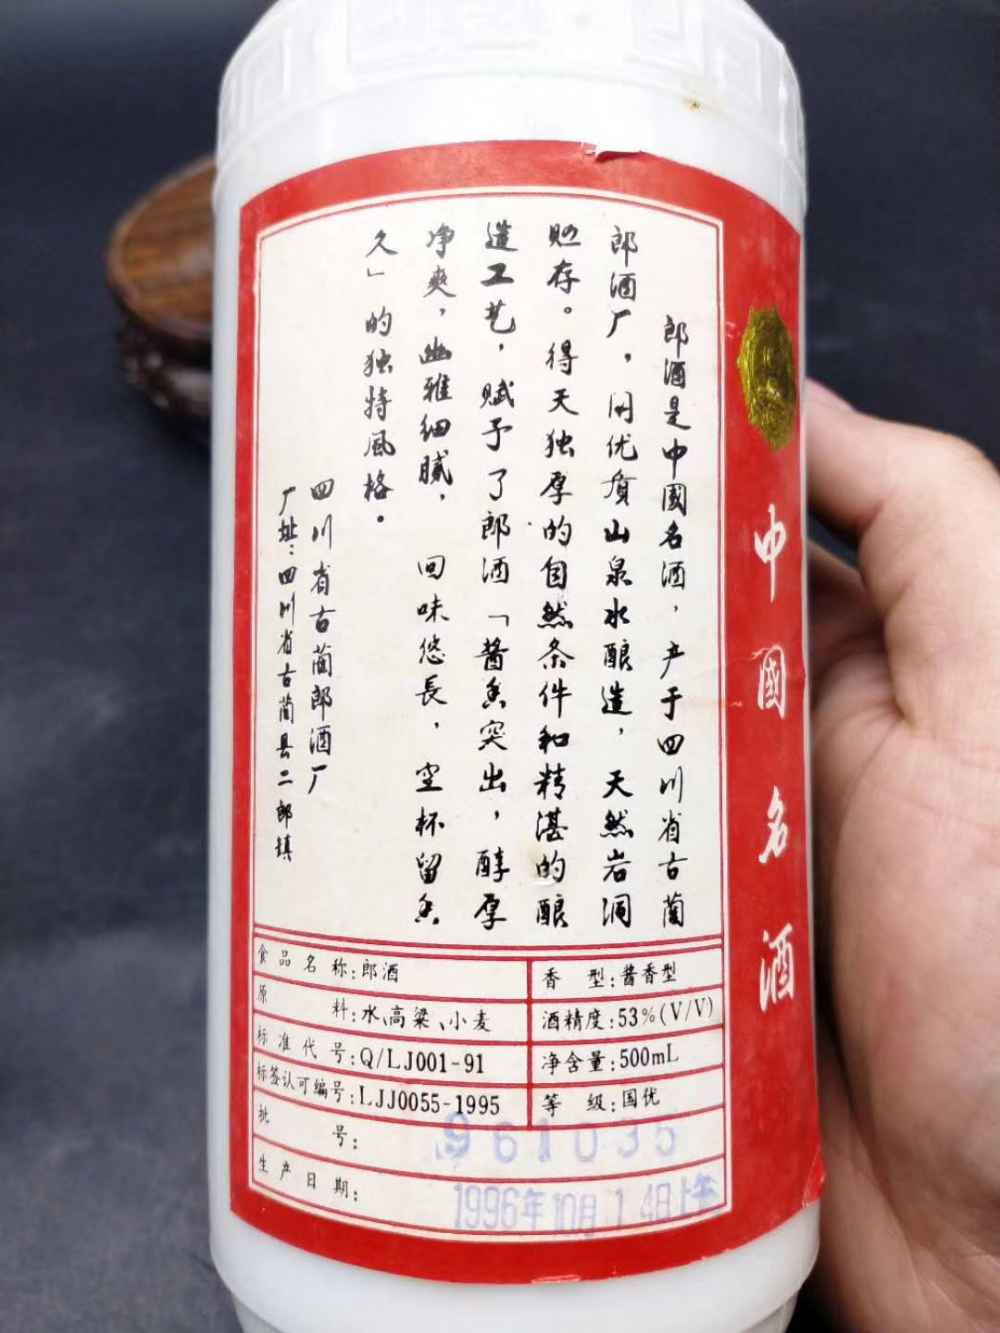 郎酒是中國名酒，产于四川省古蔺
郎酒厂，用优质山泉水酿造，天然岩洞
贮存。得天独厚的自然条件和精湛的酿
造工艺，赋予了郎酒「酱香突出，醇厚
净爽，幽雅细腻，回味悠長，空杯留香
久」的独特风格。
四川省古蔺郎酒厂
厂址：四川省古蔺县二郎镇
中國名酒
食品名称:郎酒
香型:酱香型
原料:水、高粱、小麦
酒精度:53%(V/V)
标准代号:Q/LJ001-91
净含量:500mL
标签认可编号:LJJ0055-1995
等级:国优
批号: 961035
生产日期: 1996年10月14日上午